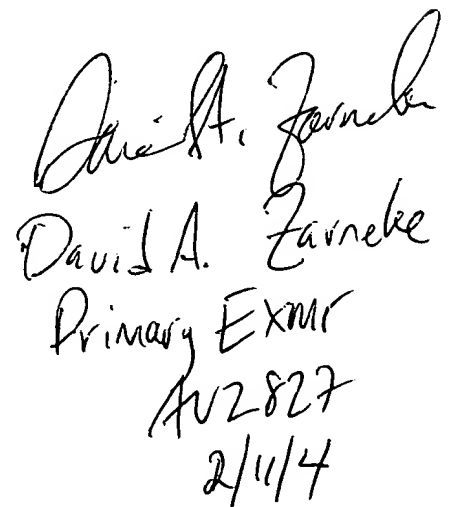 David A. Zarneke
David A. Zarneke
Primary Exmr
AU2827
2/11/4